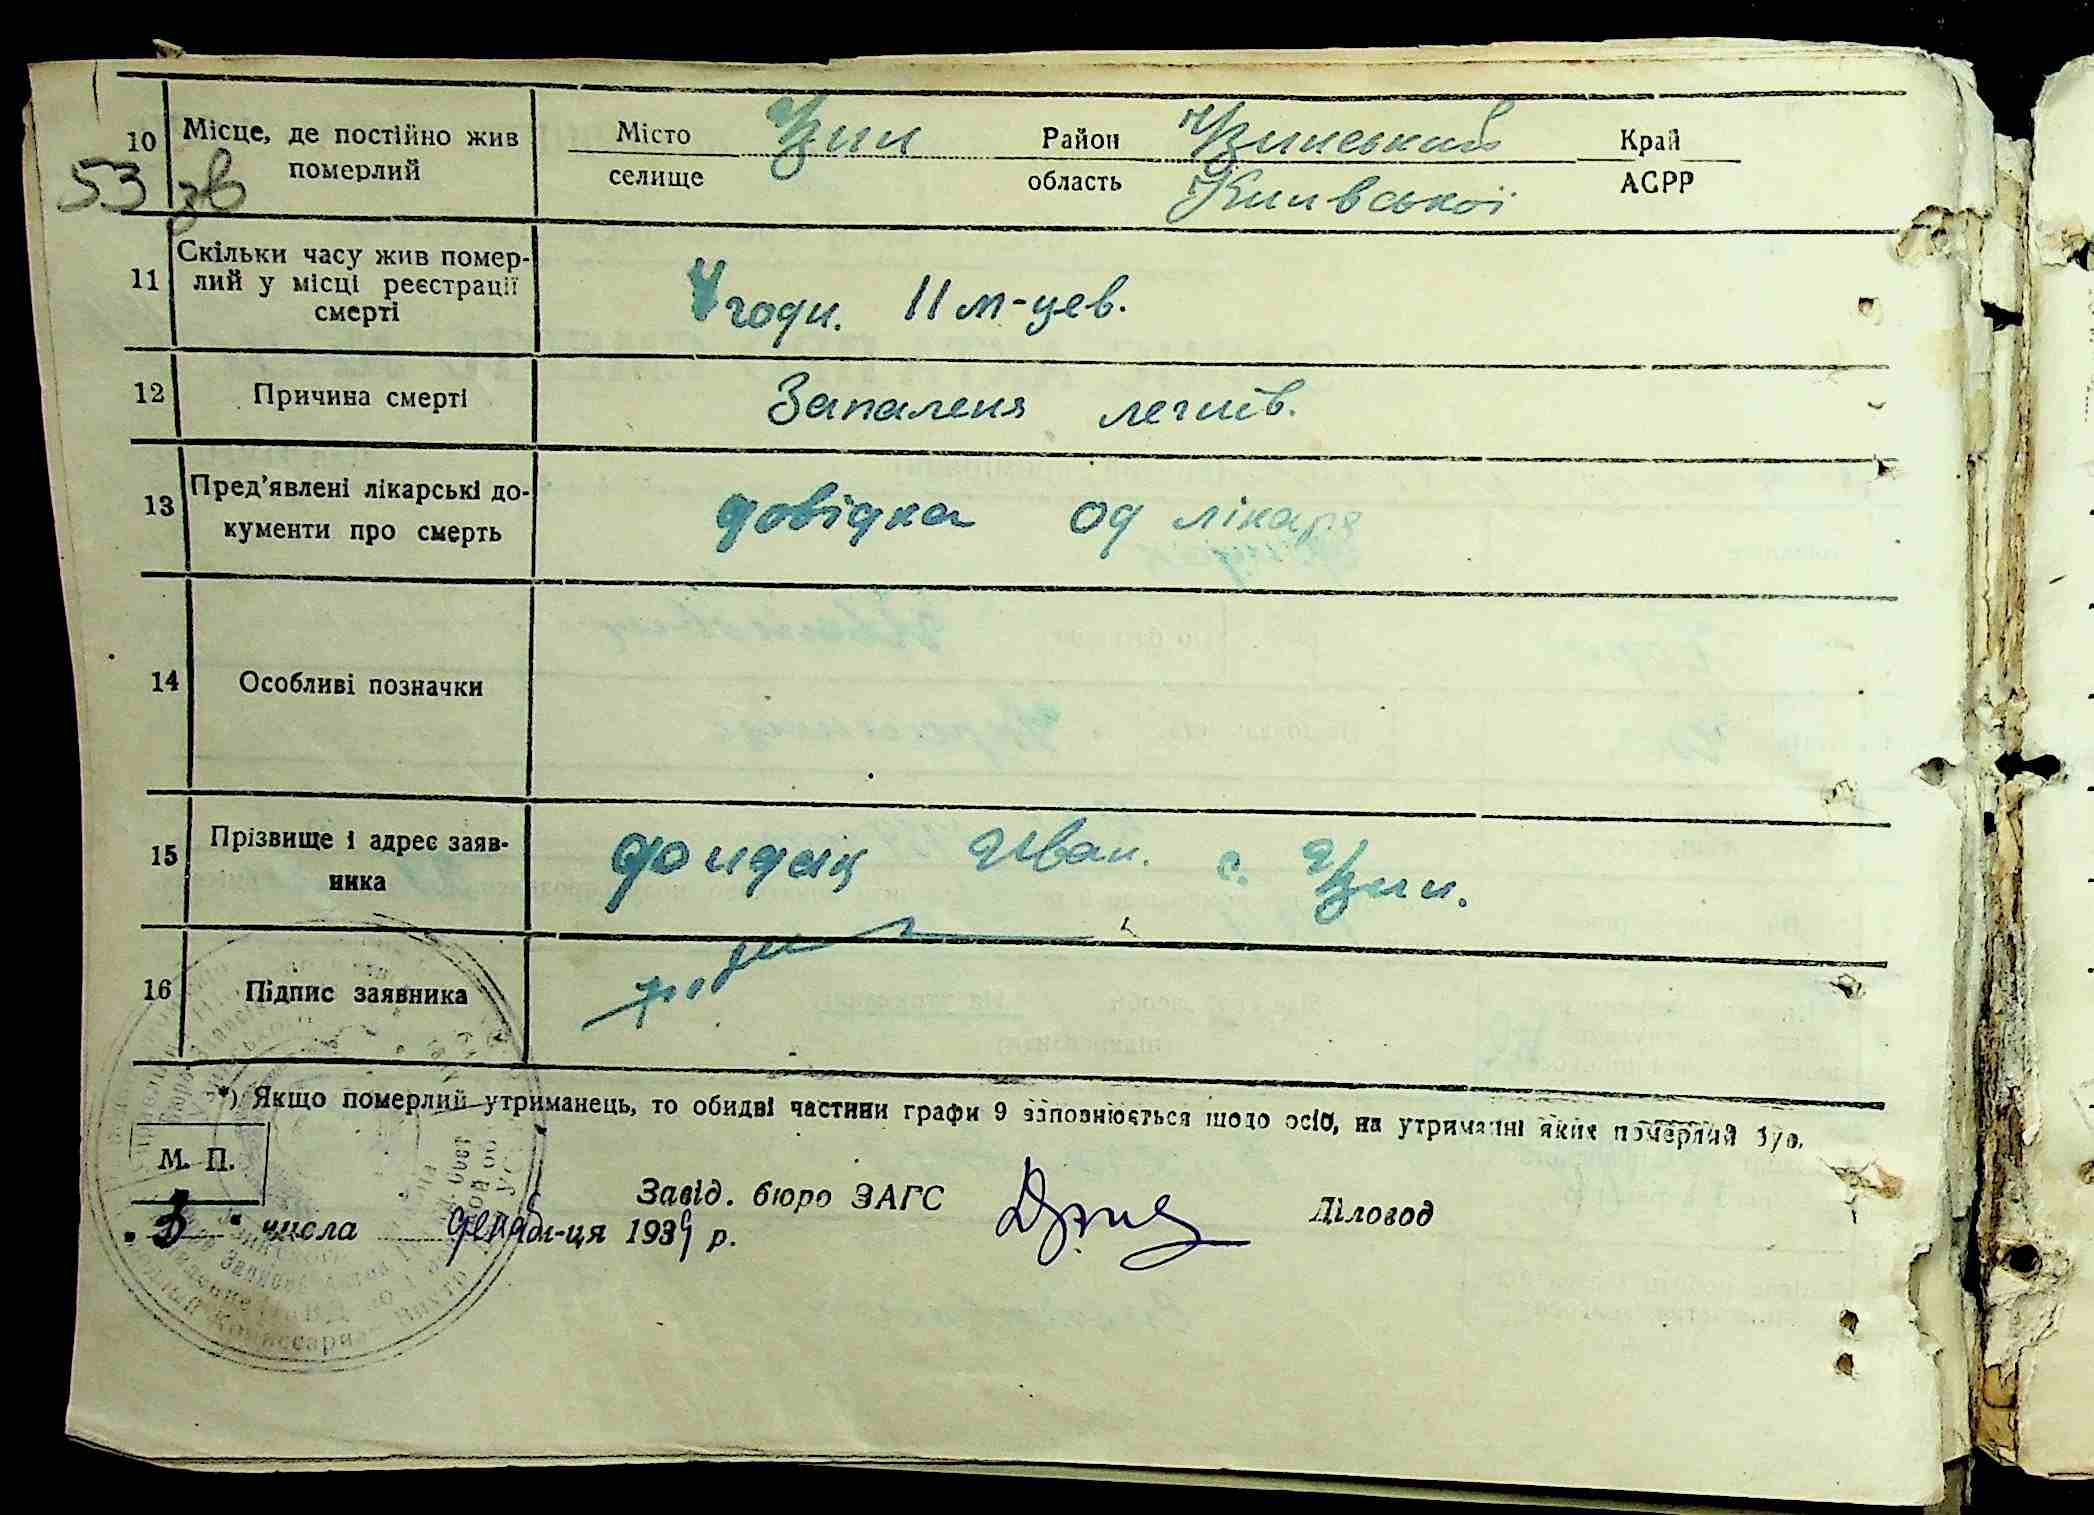 10 Місце, де постійно жив померлий Місто селище Узин Район область Узинський Київської Край АСРР
53 зв
11 Скільки часу жив помер-
лий у місці реєстрації
смерті
годи. 11 м-цев.
12 Причина смерті Запаленя легнів.
13 Пред'явлені лікарські до-
кументи про смерть
довідка од лікаря
14 Особливі позначки
15 Прізвище і адрес заяв-
ника
Иван. с. Узин.
16 Підпис заявника
*) Якщо померлий утриманець, то обидві частини графи 9 заповнюється щодо осіб, на утриманні яких померлий був.
М. П.
Завід. бюро ЗАГС Діловод
" 3 " числа декаб м-ця 1939 р.